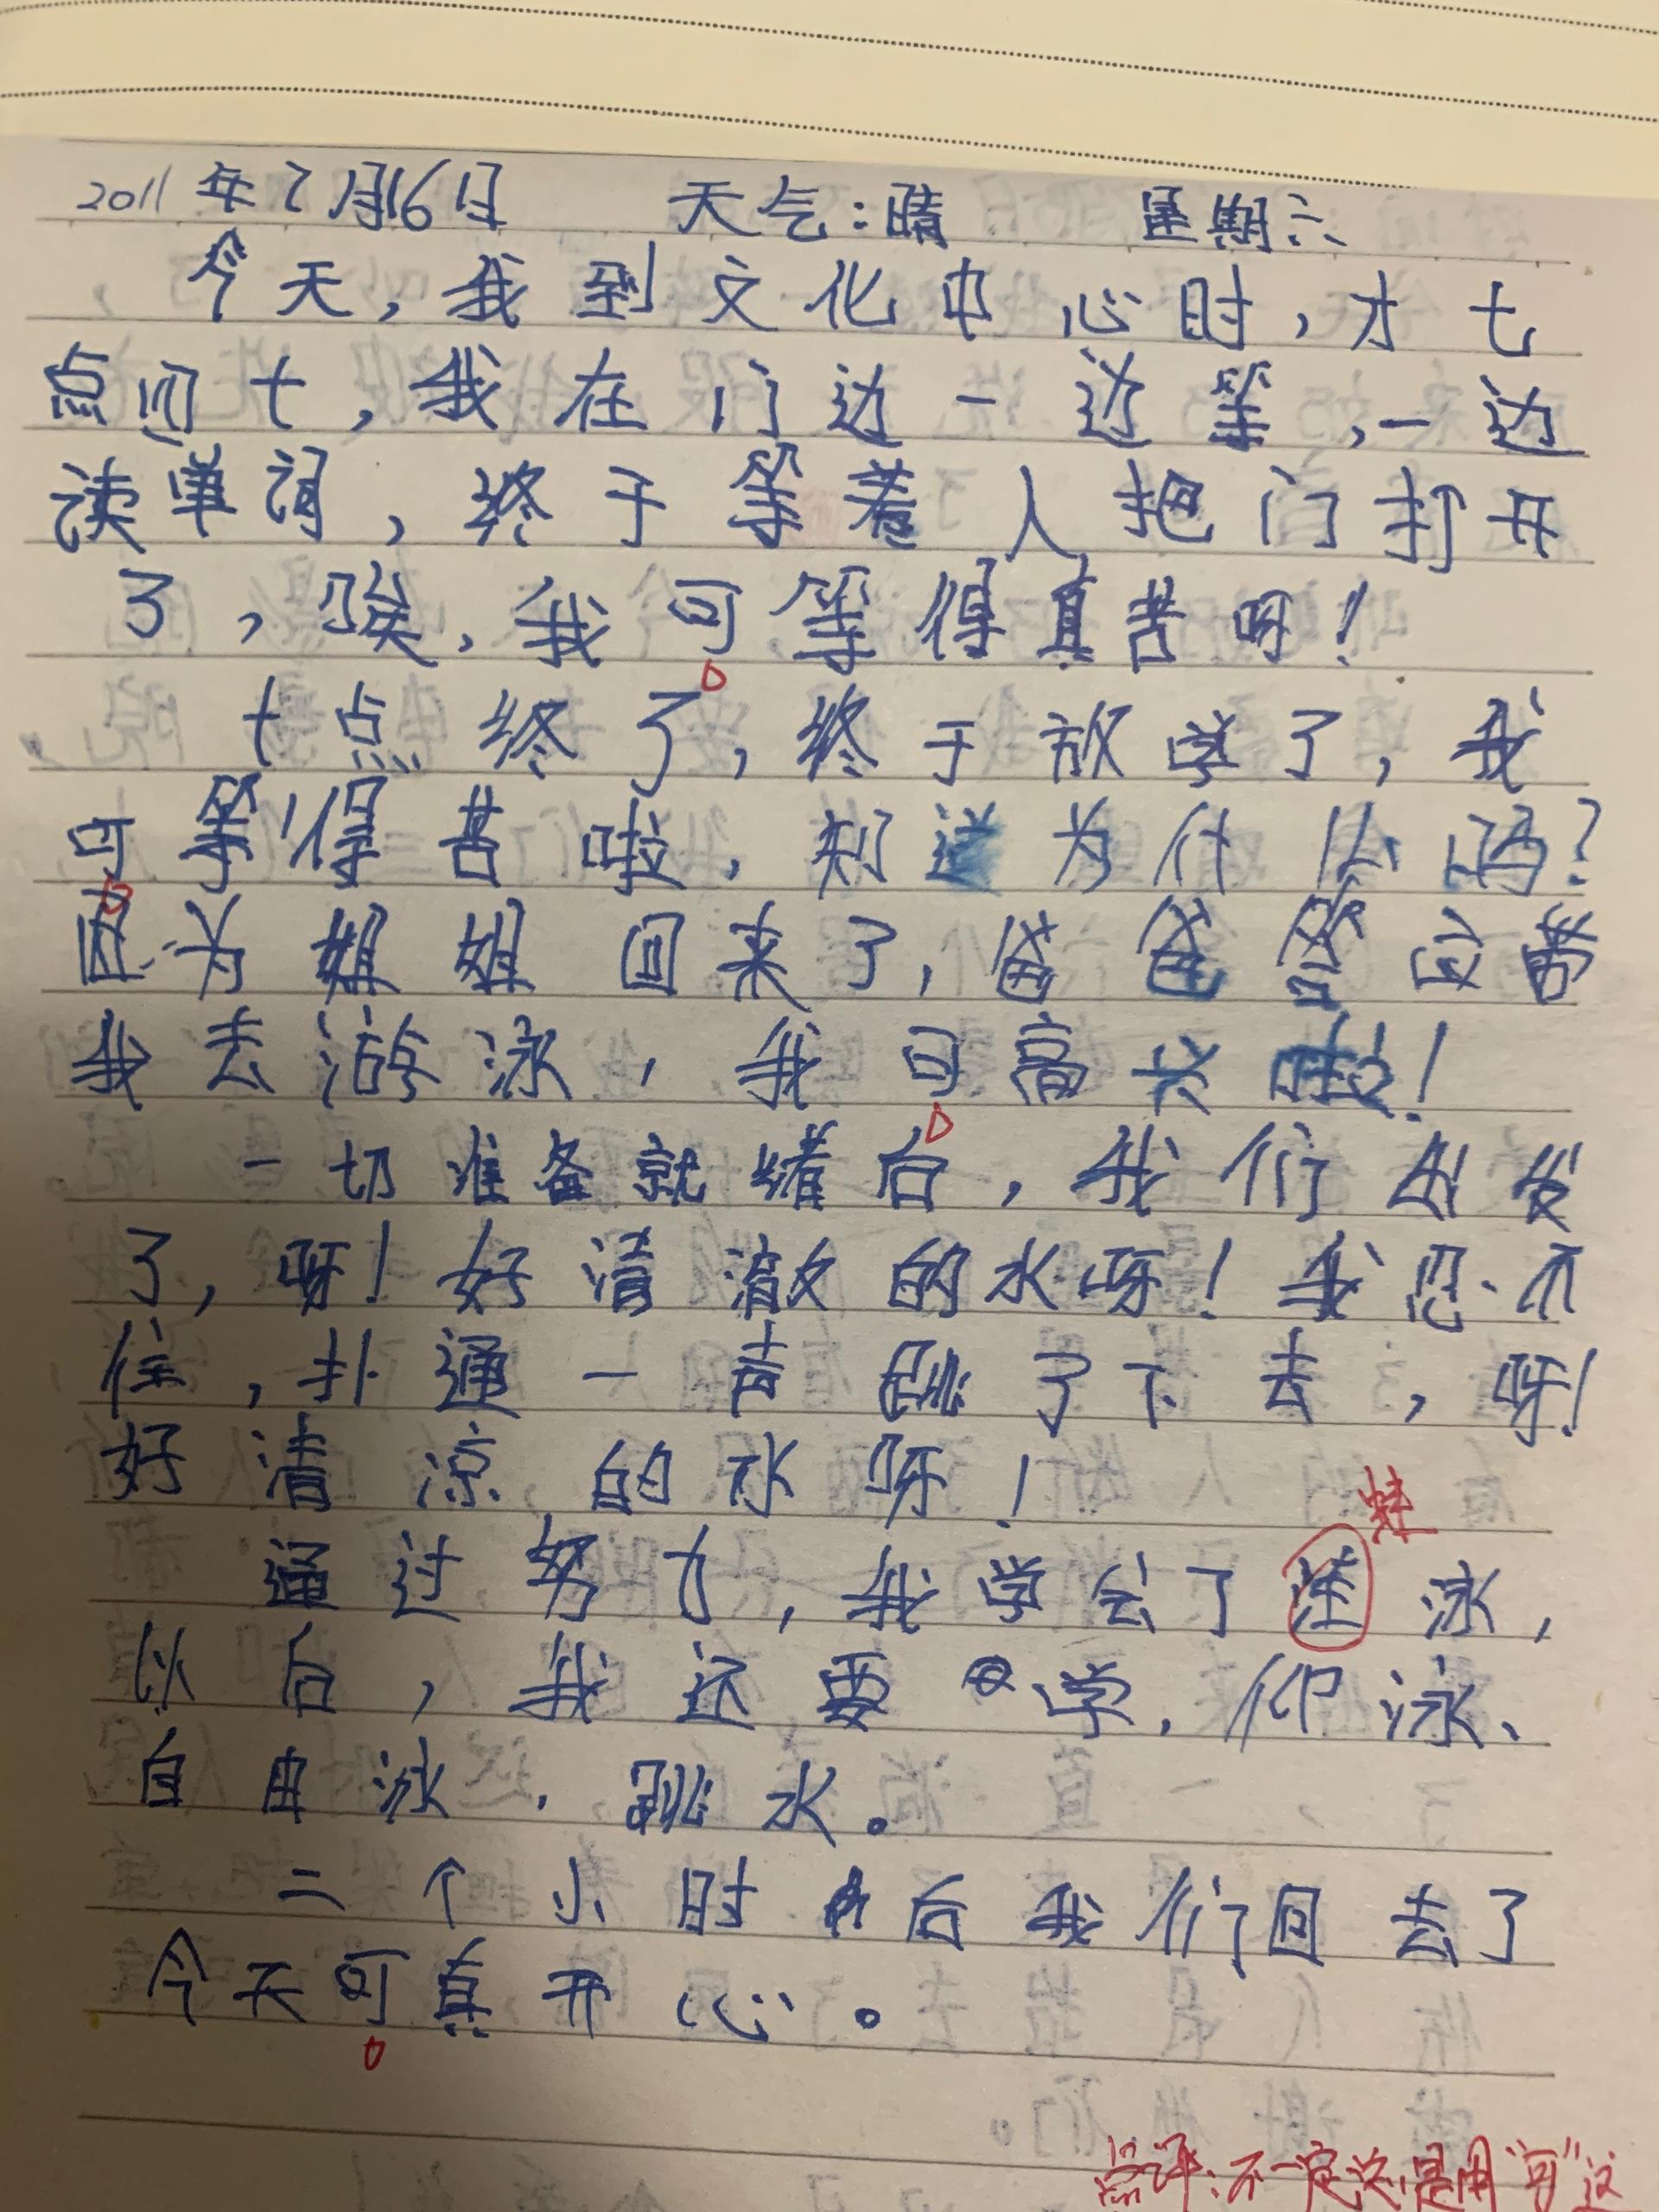 2011年7月16日 天气:晴 星期六
今天,我到文化中心时,才七
点四十,我在门边一边等,一边
读单词,终于等着人把门打开
了,唉,我可等得真苦呀!
十点终了,终于放学了,我
可等得苦啦,知道为什么吗?
因为姐姐回来了,爸爸答应带
我去游泳,我可高兴啦!
一切准备就绪后,我们出发
了,呀!好清澈的水呀!我忍不
住,扑通一声跳了下去,呀!
好清凉的水呀!
蛙
通过努力,我学会了洼泳,
以后,我还要学,仰泳、
自由泳,跳水。
二个小时后我们回去了
今天可真开心。
点评:不一定总是用“可”这